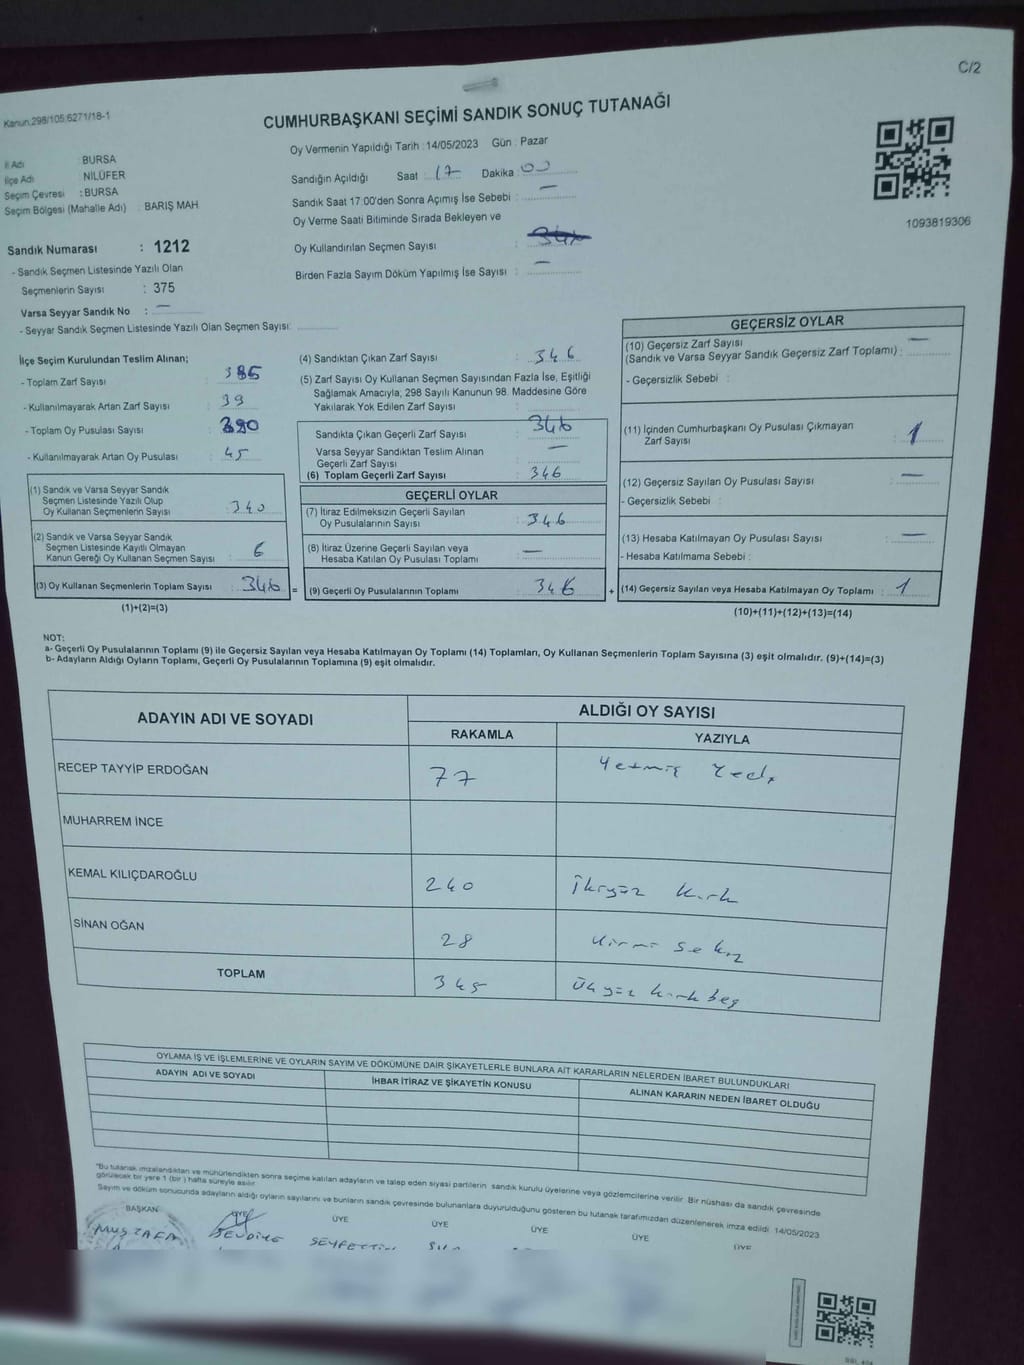 C/2
Kanun.298/105;6271/18-1
CUMHURBAŞKANI SEÇİMİ SANDIK SONUÇ TUTANAĞI
İl Adı : BURSA
İlçe Adı : NİLÜFER
Seçim Çevresi : BURSA
Seçim Bölgesi (Mahalle Adı) : BARIŞ MAH.
Sandık Numarası : 1212
- Sandık Seçmen Listesinde Yazılı Olan
Seçmenlerin Sayısı : 375
Varsa Seyyar Sandık No : —
- Seyyar Sandık Seçmen Listesinde Yazılı Olan Seçmen Sayısı:
Oy Vermenin Yapıldığı Tarih : 14/05/2023 Gün : Pazar
Sandığın Açıldığı Saat : 17 Dakika : 00
Sandık Saat 17:00'den Sonra Açımış İse Sebebi : —
Oy Verme Saati Bitiminde Sırada Bekleyen ve
Oy Kullandırılan Seçmen Sayısı :
Birden Fazla Sayım Döküm Yapılmış İse Sayısı : —
1093819306
İlçe Seçim Kurulundan Teslim Alınan;
- Toplam Zarf Sayısı : 385
- Kullanılmayarak Artan Zarf Sayısı : 39
- Toplam Oy Pusulası Sayısı : 390
- Kullanılmayarak Artan Oy Pusulası : 45
(1) Sandık ve Varsa Seyyar Sandık
Seçmen Listesinde Yazılı Olup
Oy Kullanan Seçmenlerin Sayısı : 340
(2) Sandık ve Varsa Seyyar Sandık
Seçmen Listesinde Kayıtlı Olmayan
Kanun Gereği Oy Kullanan Seçmen Sayısı : 6
(3) Oy Kullanan Seçmenlerin Toplam Sayısı : 346
(1)+(2)=(3)
=
(4) Sandıktan Çıkan Zarf Sayısı : 346
(5) Zarf Sayısı Oy Kullanan Seçmen Sayısından Fazla İse, Eşitliği
Sağlamak Amacıyla, 298 Sayılı Kanunun 98. Maddesine Göre
Yakılarak Yok Edilen Zarf Sayısı :
Sandıkta Çıkan Geçerli Zarf Sayısı : 346
Varsa Seyyar Sandıktan Teslim Alınan
Geçerli Zarf Sayısı : —
(6) Toplam Geçerli Zarf Sayısı : 346
GEÇERLİ OYLAR
(7) İtiraz Edilmeksizin Geçerli Sayılan
Oy Pusulalarının Sayısı : 346
(8) İtiraz Üzerine Geçerli Sayılan veya
Hesaba Katılan Oy Pusulası Toplamı : —
(9) Geçerli Oy Pusulalarının Toplamı : 346
+
GEÇERSİZ OYLAR
(10) Geçersiz Zarf Sayısı —
(Sandık ve Varsa Seyyar Sandık Geçersiz Zarf Toplamı) :
- Geçersizlik Sebebi :
(11) İçinden Cumhurbaşkanı Oy Pusulası Çıkmayan
Zarf Sayısı : 1
(12) Geçersiz Sayılan Oy Pusulası Sayısı : —
- Geçersizlik Sebebi :
(13) Hesaba Katılmayan Oy Pusulası Sayısı : —
- Hesaba Katılmama Sebebi :
(14) Geçersiz Sayılan veya Hesaba Katılmayan Oy Toplamı : 1
(10)+(11)+(12)+(13)=(14)
NOT:
a- Geçerli Oy Pusulalarının Toplamı (9) ile Geçersiz Sayılan veya Hesaba Katılmayan Oy Toplamı (14) Toplamları, Oy Kullanan Seçmenlerin Toplam Sayısına (3) eşit olmalıdır. (9)+(14)=(3)
b- Adayların Aldığı Oyların Toplamı, Geçerli Oy Pusulalarının Toplamına (9) eşit olmalıdır.
ADAYIN ADI VE SOYADI
ALDIĞI OY SAYISI
RAKAMLA YAZIYLA
RECEP TAYYİP ERDOĞAN 77 Yetmiş Yedi
MUHARREM İNCE
KEMAL KILIÇDAROĞLU 240 İkiyüz kırk
SİNAN OĞAN 28 Yirmi sekiz
TOPLAM 345 Üçyüz kırkbeş
OYLAMA İŞ VE İŞLEMLERİNE VE OYLARIN SAYIM VE DÖKÜMÜNE DAİR ŞİKAYETLERLE BUNLARA AİT KARARLARIN NELERDEN İBARET BULUNDUKLARI
ADAYIN ADI VE SOYADI İHBAR İTİRAZ VE ŞİKAYETİN KONUSU ALINAN KARARIN NEDEN İBARET OLDUĞU
"Bu tutanak imzalandıktan ve mühürlendikten sonra seçime katılan adayların ve talep eden siyasi partilerin sandık kurulu üyelerine veya gözlemcilerine verilir. Bir nüshası da sandık çevresinde
görülecek bir yere 1 (bir ) hafta süreyle asılır.
Sayım ve döküm sonucunda adayların aldığı oyların sayılarını ve bunların sandık çevresinde bulunanlara duyurulduğunu gösteren bu tutanak tarafımızdan düzenlenerek imza edildi. 14/05/2023
BAŞKAN ÜYE ÜYE ÜYE ÜYE ÜYE ÜYE
MUSTAFA SEYFETTİN